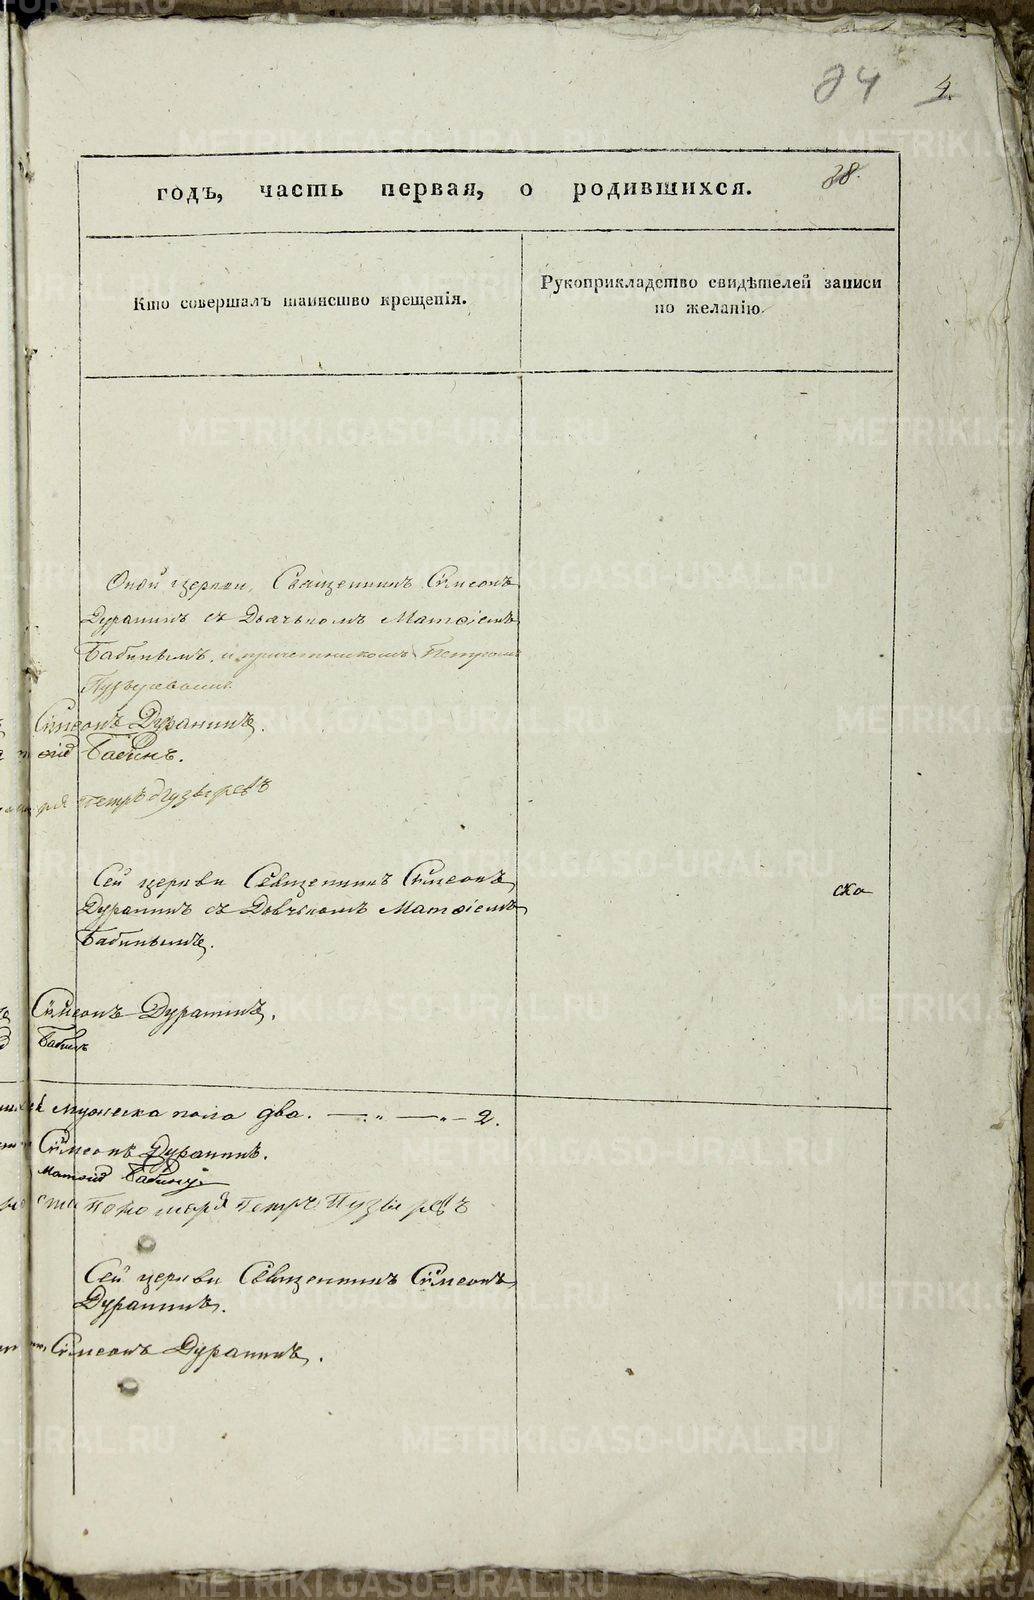 84 4.
годъ, часть первая, о родившихся. 38.
Кто совершалъ таинство крещенія.
Рукоприкладство свидѣтелей записи
по желанію.
Оной церкви, Священникъ Симеонъ
Дуранинъ съ Дьячкомъ Матѳіемъ
Бабинымъ, и причетникомъ Петромъ
Пузыревымъ
Симеонъ Дуранинъ.
Бабинъ.
Петръ Пузыревъ
Сей церкви Священникъ Симеонъ
Дуранинъ съ Дьячкомъ Матѳіемъ
Бабинымъ.
ско
Симеонъ Дуранинъ.
Бабинъ
мужеска пола два. — „ — „ — 2.
Симеонъ Дуранинъ.
Матѳій Бабинъ
пономаря Петръ Пузыревъ
Сей церкви Священникъ Симеонъ
Дуранинъ.
Симеонъ Дуранинъ.
METRIKI.GASO-URAL.RU